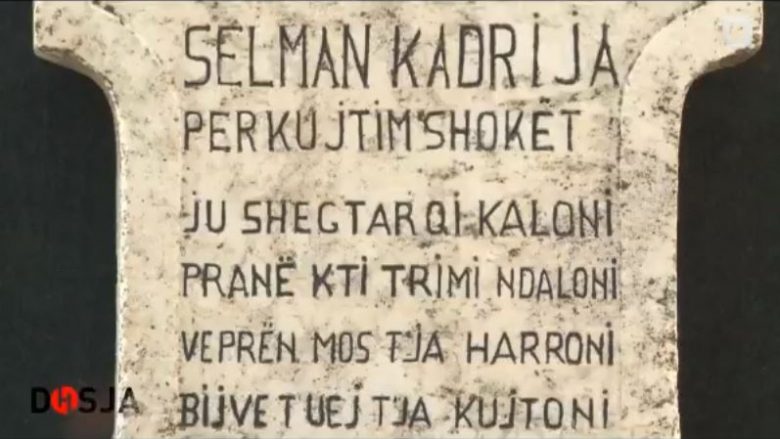 SELMAN KADRIJA
PERKUJTIM'SHOKET
JU SHEGTAR QI KALONI
PRANË KTI TRIMI NDALONI
VEPRËN MOS TJA HARRONI
BIJVE TUEJ TJA KUJTONI
DOSJA